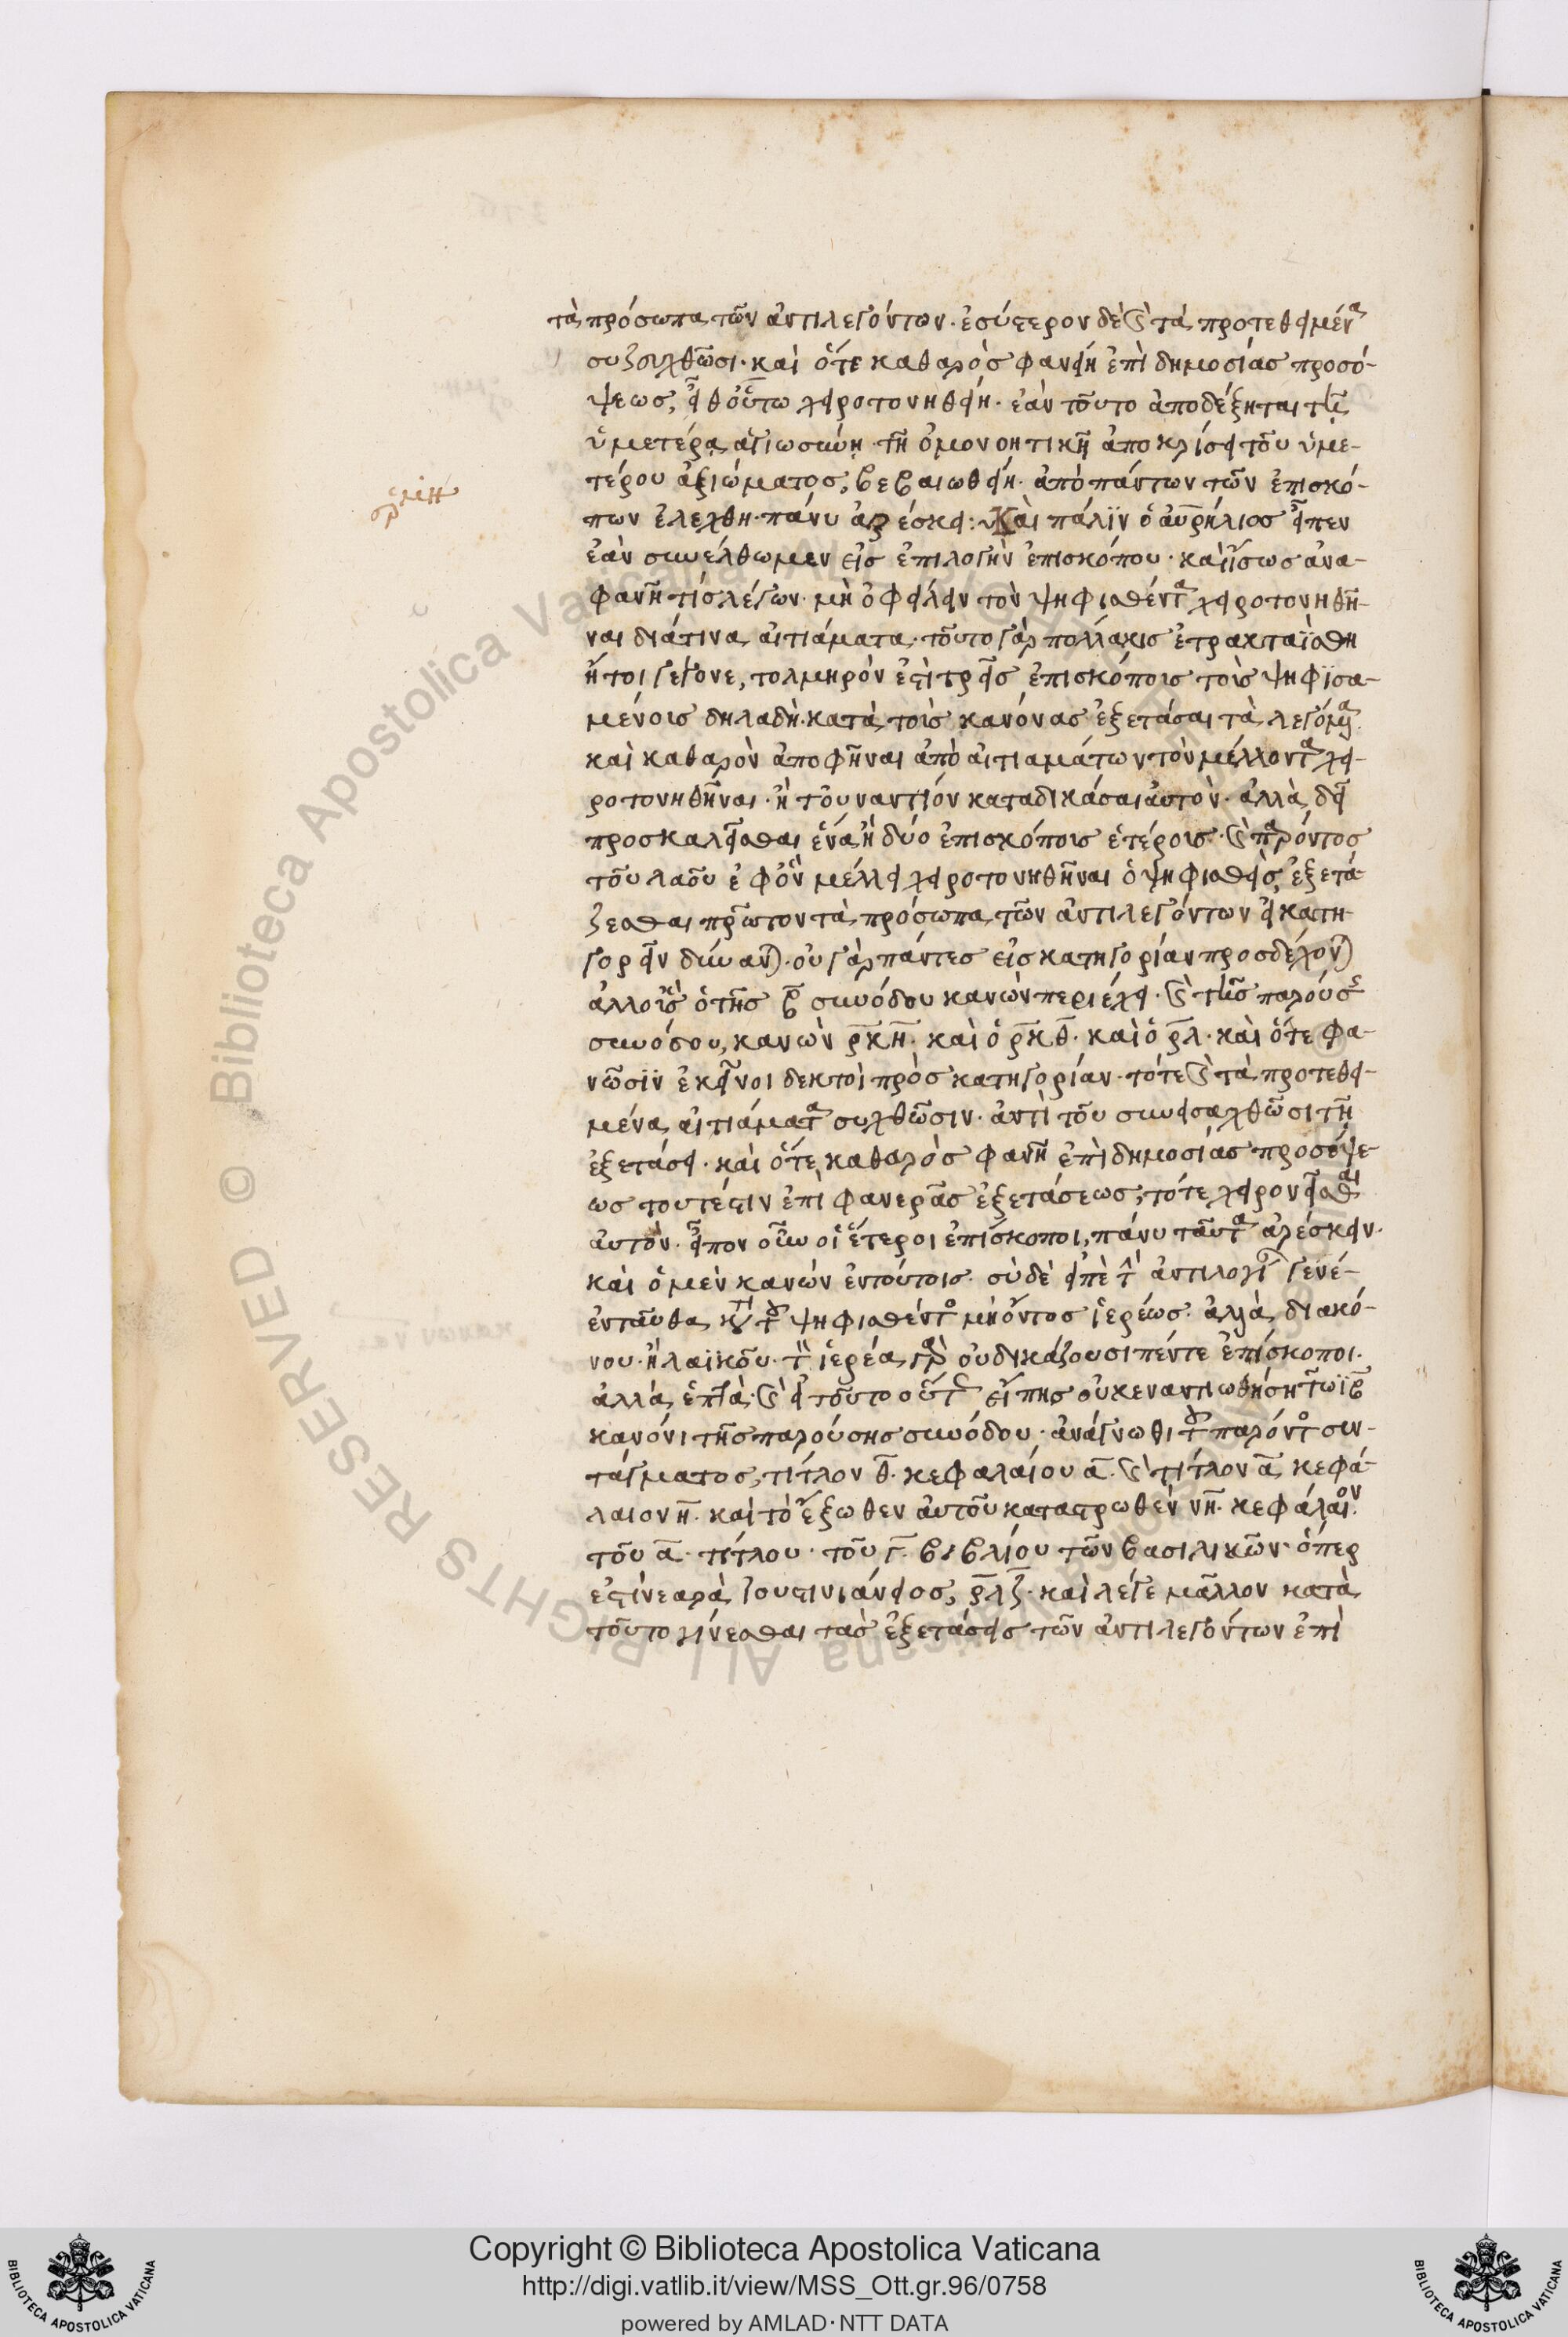 τὰ πρόσωπα τῶν ἀντιλεγόντων· ἐσύστερον δὲ καὶ τὰ προτεθειμένα
συζειχθῶσι· καὶ ὅτε καθαρὸς φανείη ἐπὶ δημοσίας προσό-
ψεως, εἶθ οὕτω χειροτονηθείη· ἐὰν τοῦτο ἀποδέξηται τῆ
ὑμετέρα ἁγιωσύνη τῆ ὁμονοητικῆ ἀποκλίσει τοῦ ὑμε-
τέρου ἀξιώματος, βεβαιωθείη· ἀπὸ πάντων τῶν ἐπισκό-
πων ἐλέχθη· πάνυ ἀρέσκει: Καὶ πάλϊν ὁ αὐρήλιος εἶπεν
ἐὰν συνέλθωμεν εἰς ἐπιλογὴν ἐπισκόπου· καὶ ἴσως ἀνα-
φανῆ τίς λέγων· μὴ ὀφείλειν τὸν ψηφισθέντα χειροτονηθῆ-
ναι διάτινα αἰτιάματα· τοῦτο γὰρ πολλάκις ἐτρακταΐσθη
ἤτοι γέγονε, τολμηρόν ἐστι τρεῖς ἐπισκόποις τοῖς ψηφϊσα-
μένοις δηλαδὴ· κατὰ τοὺς κανόνας ἐξετάσαι τὰ λεγόμενα
καὶ καθαρὸν ἀποφῆναι ἀπὸ αἰτιαμάτων τὸν μέλλοντα χει-
ροτονηθῆναι· ἢ τοὐναντίον καταδικάσαι αὐτὸν· ἀλλὰ δεῖ
προσκαλεῖσθαι ἕνα ἢ δύο ἐπισκόποις ἑτέροις· καὶ παρόντος
τοῦ λαοῦ ἐφ ὃν μέλλει χειροτονηθῆναι ὁ ψηφισθεὶς, ἐξετά-
ζεσθαι πρῶτον τὰ πρόσωπα τῶν ἀντιλεγόντων εἰ κατη-
γορεῖν δύνανται· οὐ γὰρ πάντες εἰς κατηγορίαν προσδέχονται
ἀλλ οὓς ὁ τῆς β συνόδου κανὼν περιέχει· καὶ τῆς παρούσης
συνόδου, κανὼν ρκη· καὶ ὁ ρκθ· καὶ ὁ ρλ· καὶ ὅτε φα-
νῶσϊν ἐκεῖνοι δεκτοὶ πρὸς κατηγορίαν· τότε καὶ τὰ προτεθει-
μένα αἰτιάματα συχθῶσιν· ἀντὶ τοῦ συνεισαχθῶσι τῆ
ἐξετάσει· καὶ ὅτε καθαρὸς φανῆ ἐπὶ δημοσίας προσόψε
ως τουτέστιν ἐπὶ φανερᾶς ἐξετάσεως, τότε χειρονεῖσθαι
αὐτὸν· εἶπον οὖν οἱ ἕτεροι ἐπίσκοποι, πάνυ ταῦτα ἀρέσκειν·
καὶ ὁ μὲν κανών ἐν τούτοις· σὺ δὲ εἰπὲ τὴν ἀντιλογίαν γενέ-
ἐνταῦθα κατὰ τοῦ ψηφισθέντος μὴ ὄντος ἱερέως· ἀλλὰ διακό-
νου· ἢ λαϊκοῦ· τὸν ἱερέα γὰρ οὐ δικάζουσι πέντε ἐπίσκοποι·
ἀλλὰ ἑπτὰ· καὶ εἰ τοῦτο οὕτως εἴπης οὐκ ἐναντιωθήση τῶ ιβ
κανόνι τῆς παρούσης συνόδου· ἀνάγνωθι τοῦ παρόντος συν-
τάγματος, τίτλον θ· κεφαλαίου α· καὶ τίτλον α κεφά-
λαιον η· καὶ τὸ ἔξωθεν αὐτοῦ καταστρωθὲν νη· κεφάλαιον
τοῦ α· τίτλου· τοῦ γ· βιβλίου τῶν βασιλικῶν· ὅπερ
ἐστὶ νεαρὰ ἰουστινιάνειος, ρλζ· καὶ λέγε μᾶλλον κατὰ
τοῦτο γίνεσθαι τὰς ἐξετάσεις τῶν ἀντιλεγόντων ἐπὶ
Copyright © Biblioteca Apostolica Vaticana
http://digi.vatlib.it/view/MSS_Ott.gr.96/0758
powered by AMLAD·NTT DATA